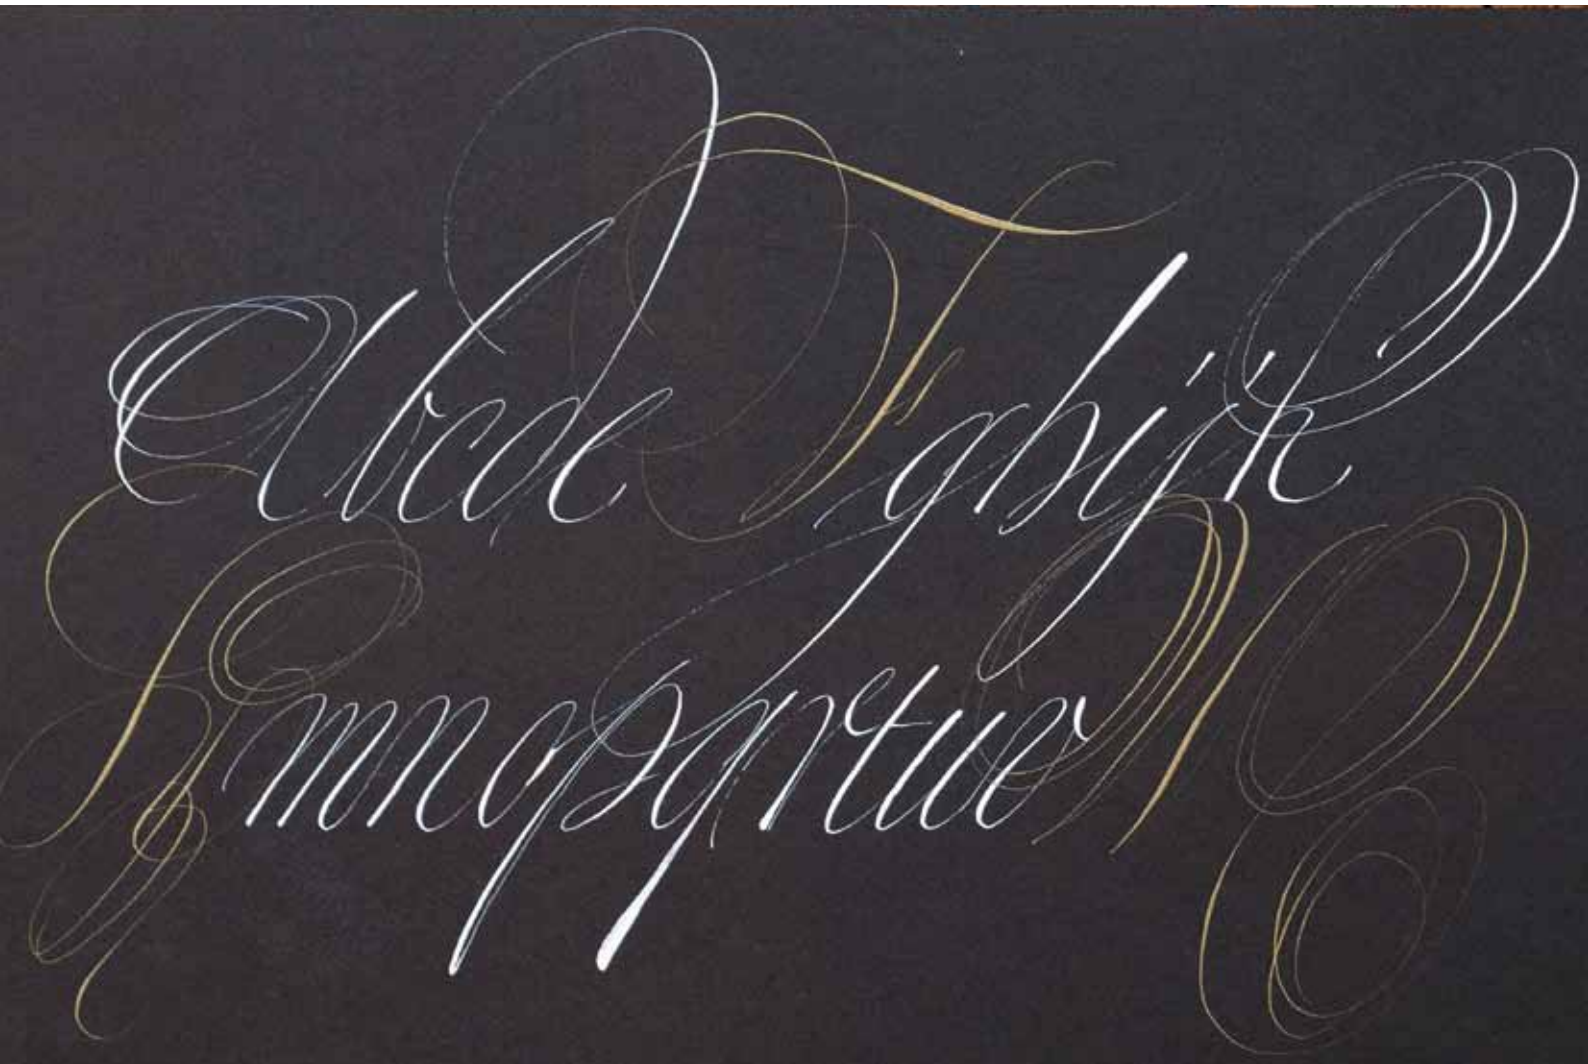 AbcdeFghijk
Lmnopqrstuv